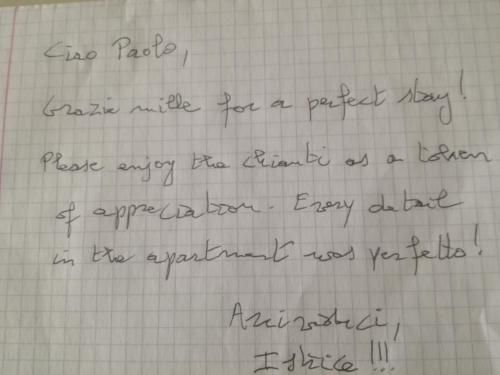 Ciao Paolo,
Grazie mille for a perfect stay!
Please enjoy the Chianti as a token
of appreciation. Every detail
in the apartment was perfetto!